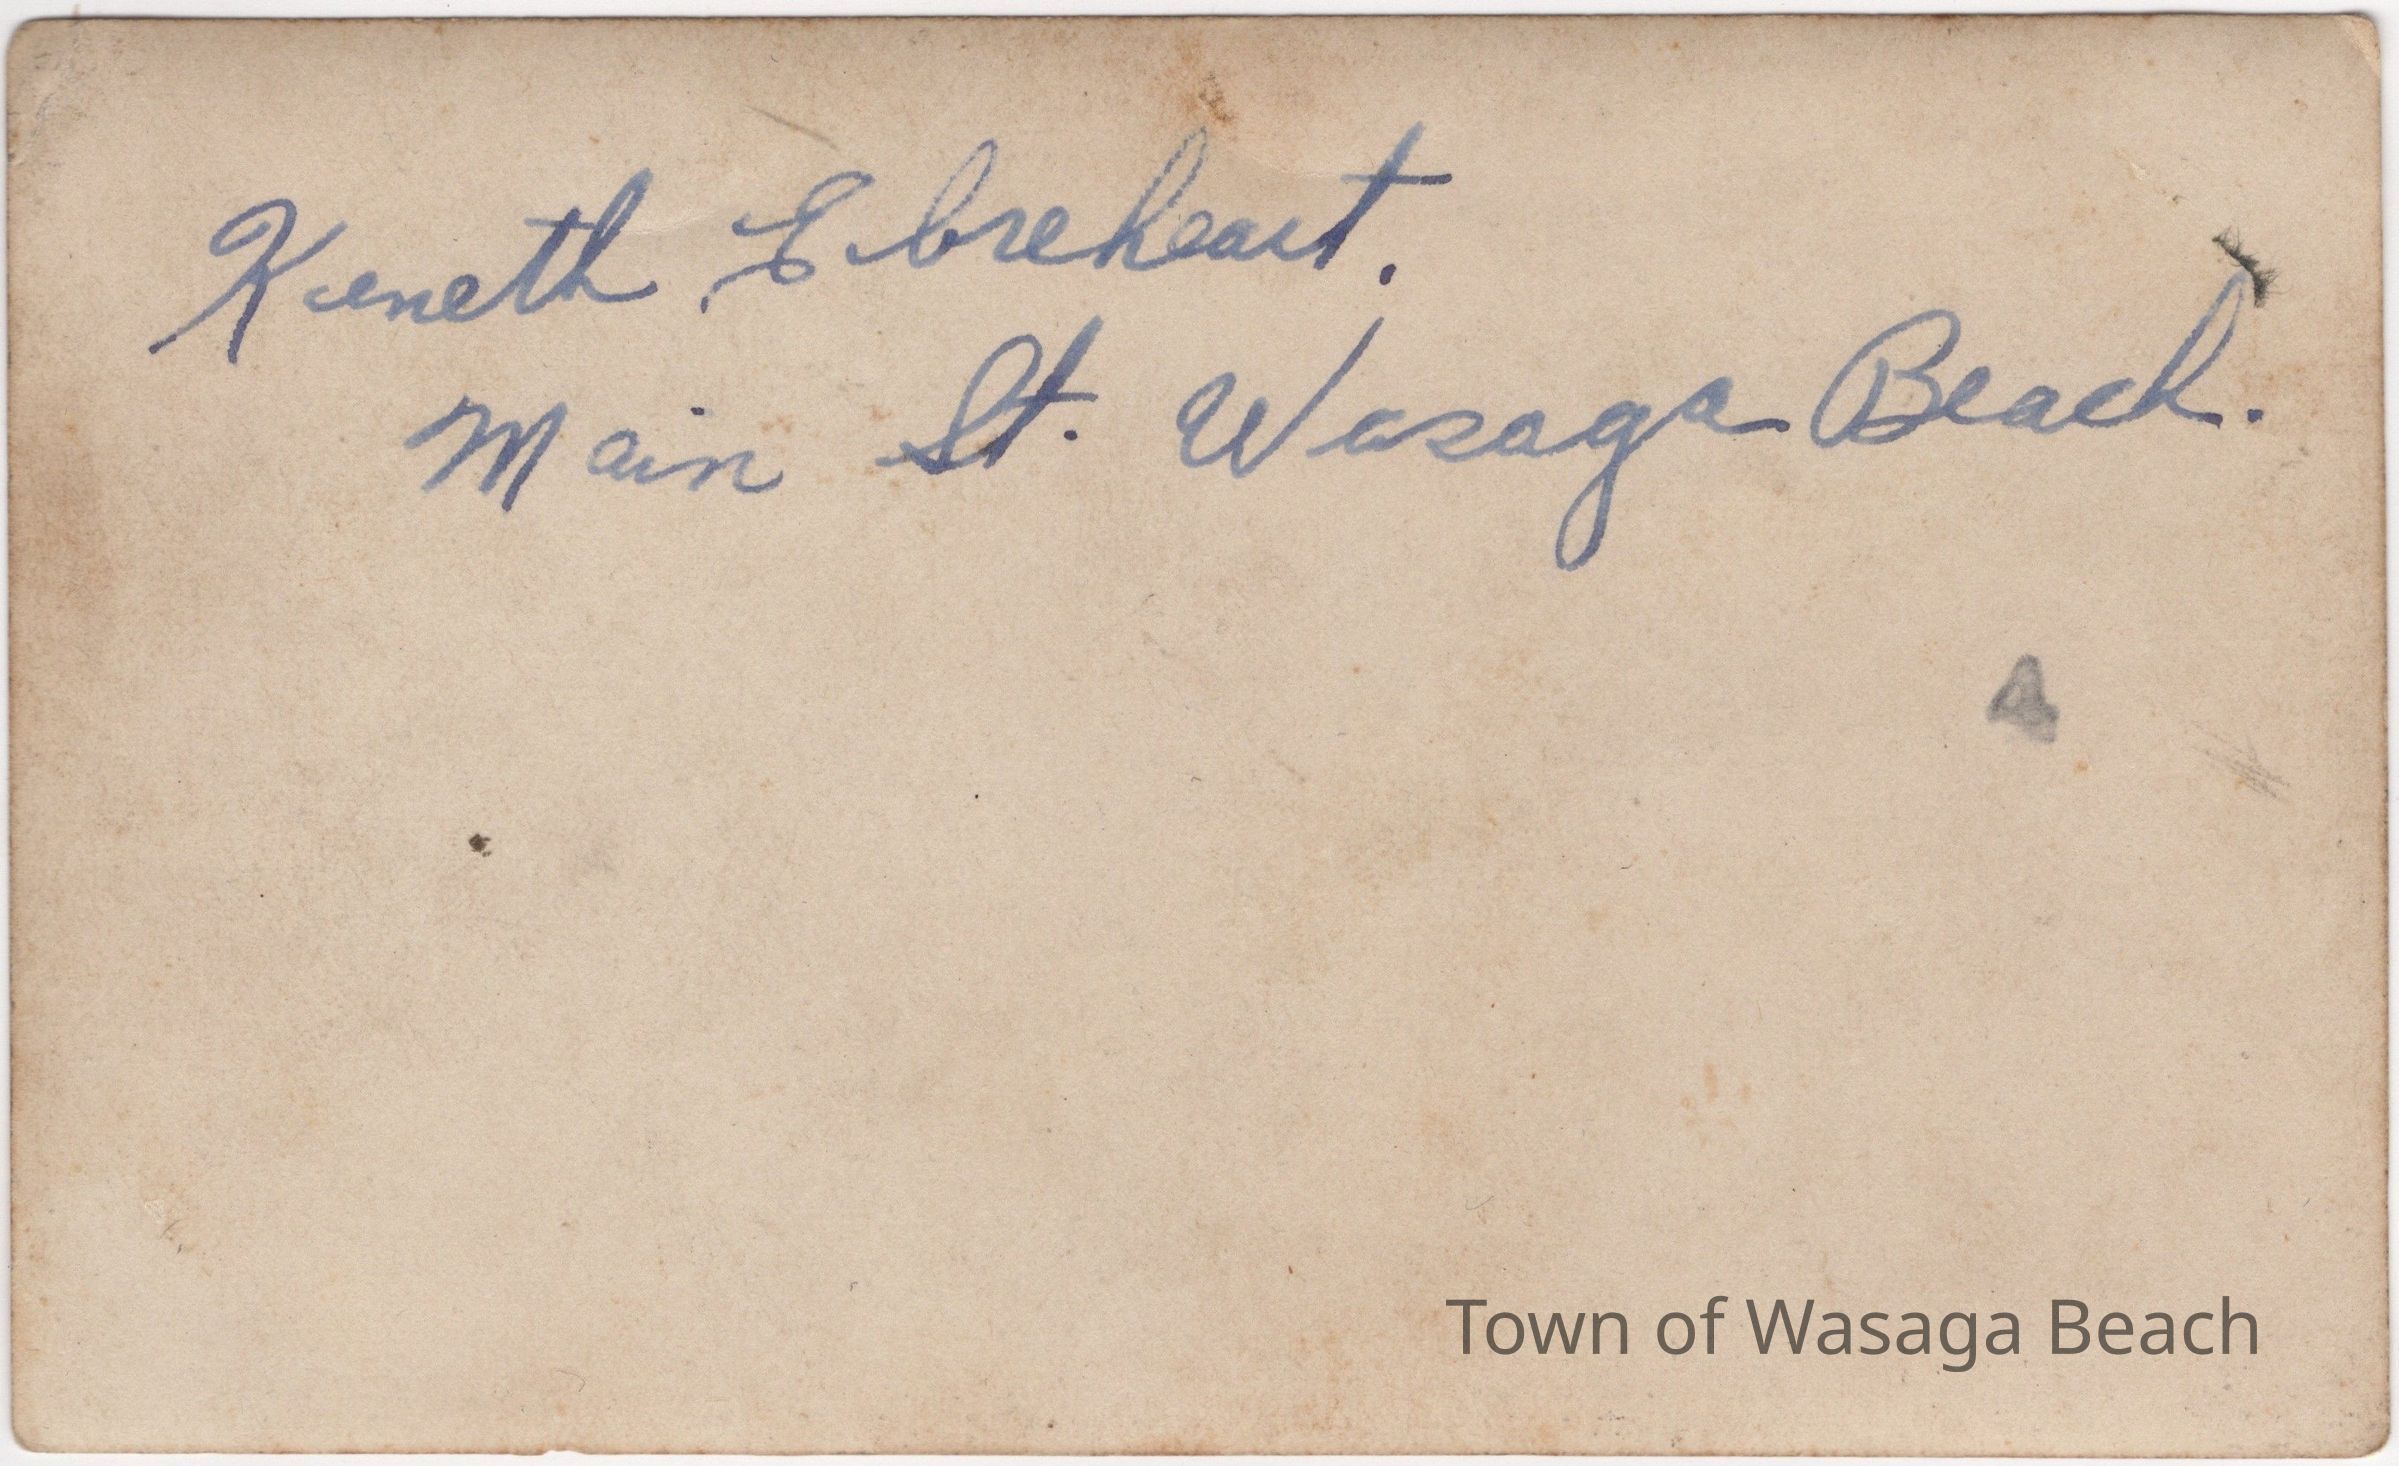 Keneth Ebreheart.
Main St. Wasaga Beach.
Town of Wasaga Beach